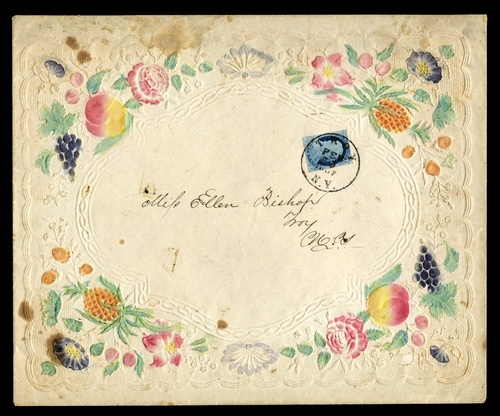 Miss Ellen Bishop
Troy
N.Y.